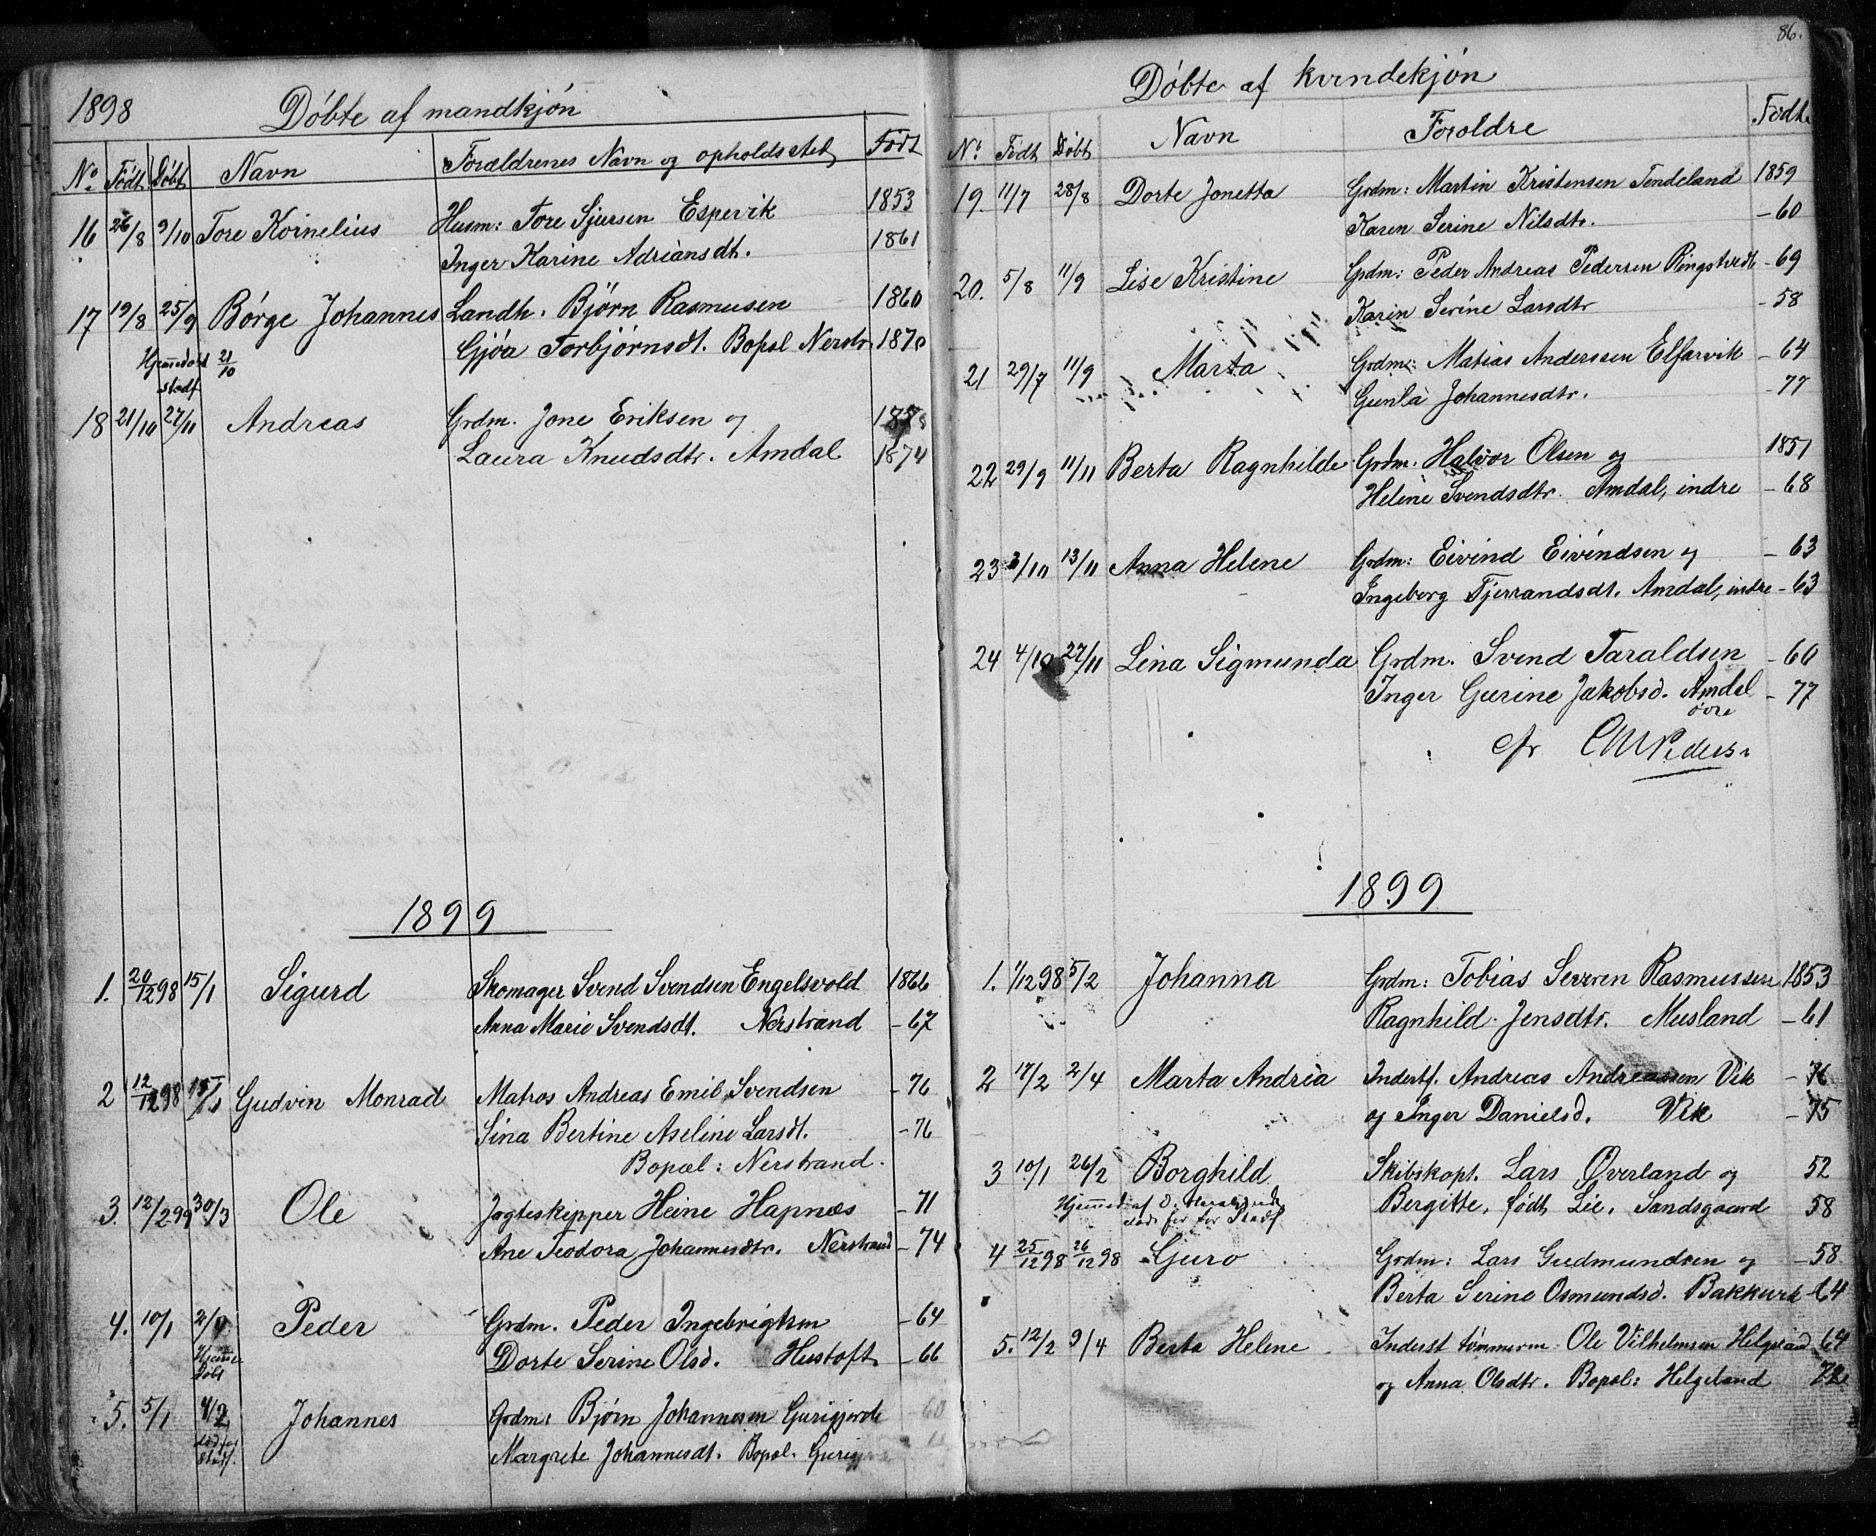 1898
Døbte af mandkjøn
No. Født Døbt Navn Forældrenes Navn og opholdssted Født
16 26/8 9/10 Tore Kornelius Husm: Tore Sjursen Espevik 1853
Inger Karine Adriansdt. 1861
17 19/8 25/9 Børge Johannes Landh. Bjørn Rasmusen 1860
Gjøa Torbjørnsdt. Bopæl Nerstr. 1870
Hjemmedøbt 21/10
stadf.
18 21/10 27/11 Andreas Grdm. Jone Eriksen og
Laura Knudsdtr. Amdal 1874
1899
1. 20/12 98 15/1 Sigurd Skomager Svend Svendsen Engelsvold 1866
Anna Marie Svendsdt. Nerstrand - 67
2 12/12 98 15/1 Gudvin Monrad Matros Andreas Emil Svendsen - 76
Sina Bertine Aseline Larsdt. - 76
Bopæl: Nerstrand.
3. 12/2 99 30/3 Ole Jagteskipper Heine Hapnæs - 71
Ane Teodora Johannesdtr. Nerstrand - 74
4. 10/1 2/4 Peder Grdm. Peder Ingebrigtsen - 64
Hjemme
døbt
Dorte Serine Olsd. Hustoft - 66
5. 5/1 4/2 Johannes Grdm: Bjørn Johannesen Gurigjerde - 60
Margrete Johannesdt. Bopæl.
86.
Døbte af kvindekjøn
No. Født Døbt Navn Foroldre Født
19. 11/7 28/8 Dorte Jonetta Grdm: Martin Kristensen Tendeland 1859
Karen Serine Nilsdtr. - 60
20. 5/8 11/9 Lise Kristine Grdm: Peder Andreas Pedersen Ringstvedt - 69
Karin Serine Larsdtr - 58
21 29/7 11/9 Marta Grdm: Matias Anderssen Elfarvik - 64
Gunla Johannesdtr. - 77
22 29/9 11/11 Berta Ragnhilde Grdm. Halvor Olsen og 1851
Helene Svendsdtr. Amdal, indre - 68
23 2/10 13/11 Anna Helene Grdm: Eivind Eivindsen og - 63
Ingeborg Tjerrandsdt. Amdal, indre - 63
24 4/10 27/11 Lina Sigmunda Grdm. Svend Taraldsen - 60
Inger Gurine Jakobsd. Amdal - 77
øvre
1899
1. 1/12 98 5/2 Johanna Grdm: Tobias Severen Rasmussen 1853
Ragnhild Jensdtr. Musland - 61
2 17/2 2/4 Marta Andrea Inderst. Andreas Andreassen Vik - 76
og Inger Danielsd. Vik - 75
3 10/1 26/2 Borghild Skibskapt. Lars Øverland og 52
Bergitte, født Lie, Sandsgaard 58
4 25/12 98 26/12 98 Guro Grdm: Lars Gudmundsen og - 58
Berta Serine Osmundsd. - 64
5. 12/2 9/4 Berta Helene Inderst tømmerm. Ole Vilhelmsen Helgeland 64
og Anna Olsdtr. Bopæl: Helgeland 72